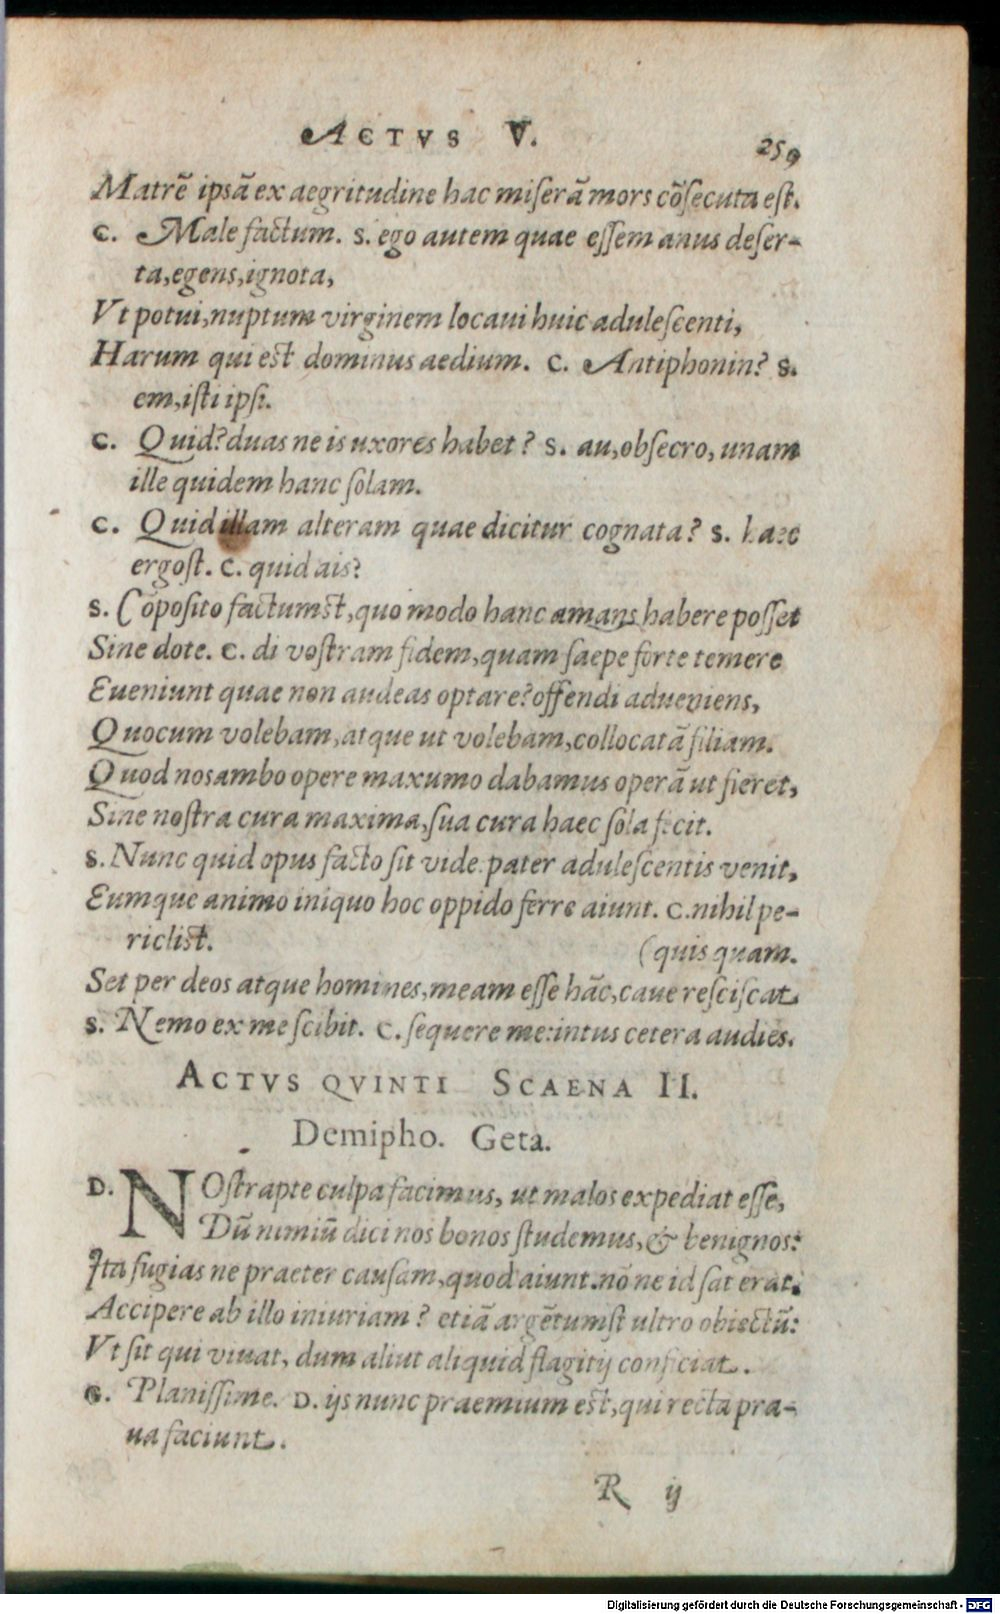 ACTVS V. 259
Matrē ipsā ex aegritudine hac miserā mors cōsecuta est.
C. Male factum. S. ego autem quae essem anus deser-
ta,egens,ignota,
Vt potui,nuptum virginem locaui huic adulescenti,
Harum qui est dominus aedium. C. Antiphonin? S.
em,isti ipsi.
C. Quid?duas ne is uxores habet? S. au,obsecro, unam
ille quidem hanc solam.
C. Quid illam alteram quae dicitur cognata? S. haec
ergost. C. quid ais?
S. Cōposito factumst,quo modo hanc amans habere posset
Sine dote. C. di vostram fidem,quam saepe forte temere
Eueniunt quae non audeas optare?offendi adueniens,
Quocum volebam,atque ut volebam,collocatā filiam.
Quod nos ambo opere maxumo dabamus operā ut fieret,
Sine nostra cura maxima,sua cura haec sola fecit.
S. Nunc quid opus facto sit vide.pater adulescentis venit,
Eumque animo iniquo hoc oppido ferre aiunt. C.nihil pe-
riclist. (quisquam.
Set per deos atque homines,meam esse hāc,caue resciscat
S. Nemo ex me scibit. C. sequere me:intus cetera audies.
ACTVS QVINTI SCAENA II.
Demipho. Geta.
D. NOstrapte culpa facimus, ut malos expediat esse,
Dū nimiū dici nos bonos studemus,& benignos:
Ita fugias ne praeter causam,quod aiunt.nō ne id sat erat.
Accipere ab illo iniuriam? etiā argētumst ultro obiectū:
Vt sit qui viuat, dum aliut aliquid flagitij conficiat.
G. Planissime. D. ijs nunc praemium est,qui recta pra-
ua faciunt.
R ij
Digitalisierung gefördert durch die Deutsche Forschungsgemeinschaft - DFG